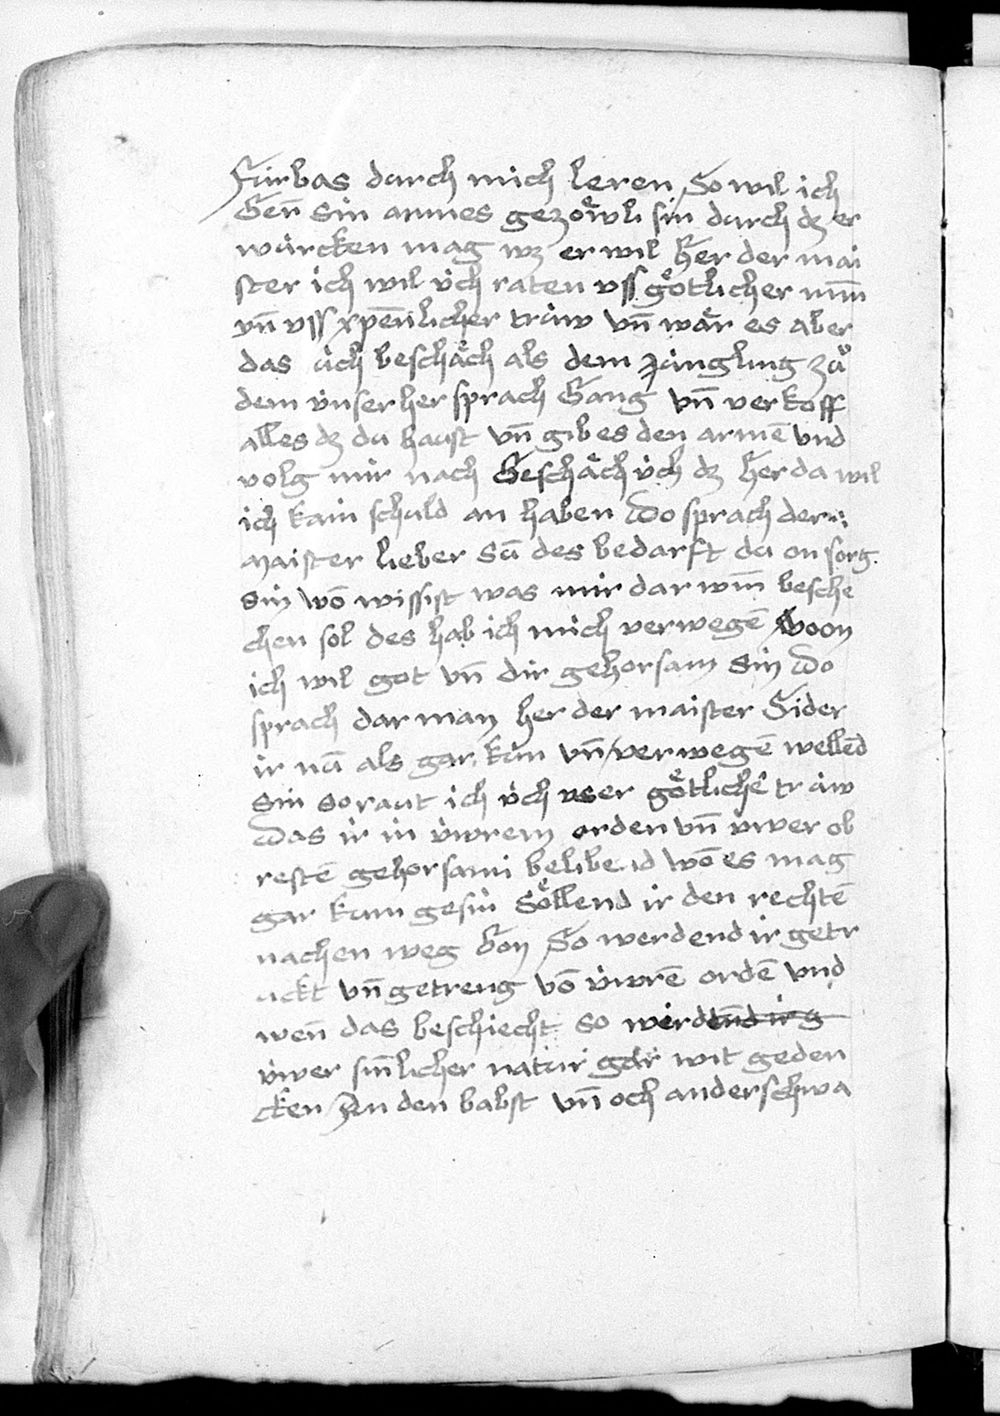 Fúrbas durch mich leren So wil ich
Gern Sin armes gezöwli sin durch dz er
würcken mag wz er wil Her der mai
ster ich wil úch raten uss götlicher mīn
vn̄ uss xp̄enlicher trúw vn̄ wär es aber
das úch beschäch als dem Júngling zů
dem únser her sprach Gang vn̄ verkoff
alles dz du haust vn̄ gib es den armē vnd
volg mir nach Geschäch úch dz Her da wil
ich kain schuld an haben Do sprach der
maister lieber Sū des bedarft du on sorg
sin wō wissist was mir dar um̄ besche
chen sol des hab ich mich verwegē Woon
ich wil got vn̄ dir gehorsam Sin Do
sprach dar man her der maister Sider
ir nū als gar kün vn̄ verwegē wellēd
Sin So raut ich úch user götlichē trúw
Das ir in úwrem orden vn̄ úwer ob
restē gehorsami belibend wō es mag
gar kum gesin Söllend ir den rechtē
nachen weg Gon So werdend ir getr
uckt vn̄ getreng vō úwrē ordē vnd
wen̄ das beschiecht so wirdend ir g
úwer sin̄licher natur gar wit geden
cken An den babst vn̄ och anderschwa